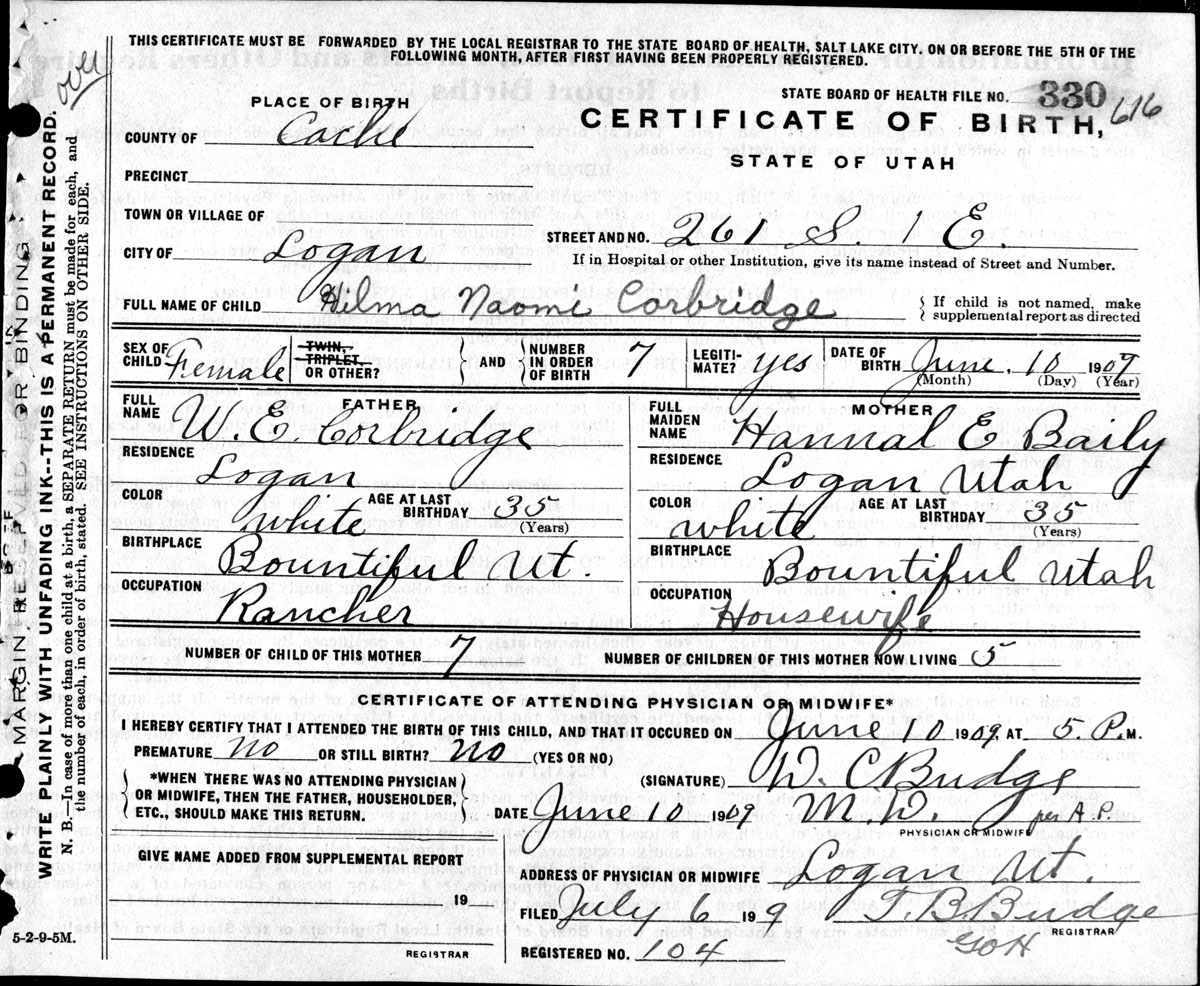 THIS CERTIFICATE MUST BE FORWARDED BY THE LOCAL REGISTRAR TO THE STATE BOARD OF HEALTH, SALT LAKE CITY, ON OR BEFORE THE 5TH OF THE
FOLLOWING MONTH, AFTER FIRST HAVING BEEN PROPERLY REGISTERED.
over
STATE BOARD OF HEALTH FILE NO. 330 616
PLACE OF BIRTH
CERTIFICATE OF BIRTH,
COUNTY OF Cache
STATE OF UTAH
PRECINCT
TOWN OR VILLAGE OF
STREET AND NO. 261 S. 1 E.
CITY OF Logan
If in Hospital or other Institution, give its name instead of Street and Number.
FULL NAME OF CHILD Hilma Naomi Corbridge
If child is not named, make
supplemental report as directed
SEX OF CHILD Female
TWIN, TRIPLET, OR OTHER?
AND NUMBER IN ORDER OF BIRTH 7
LEGITIMATE? yes
DATE OF BIRTH June 10 1909
(Month) (Day) (Year)
FATHER
FULL NAME W. E. Corbridge
RESIDENCE Logan
COLOR white AGE AT LAST BIRTHDAY 35
(Years)
BIRTHPLACE Bountiful Ut.
OCCUPATION Rancher
MOTHER
FULL MAIDEN NAME Hannal E Baily
RESIDENCE Logan Utah
COLOR white AGE AT LAST BIRTHDAY 35
(Years)
BIRTHPLACE Bountiful Utah
OCCUPATION Housewife
NUMBER OF CHILD OF THIS MOTHER 7 NUMBER OF CHILDREN OF THIS MOTHER NOW LIVING 5
CERTIFICATE OF ATTENDING PHYSICIAN OR MIDWIFE*
I HEREBY CERTIFY THAT I ATTENDED THE BIRTH OF THIS CHILD, AND THAT IT OCCURED ON June 10 1909, AT 5 P.M.
PREMATURE No OR STILL BIRTH? No (YES OR NO)
*WHEN THERE WAS NO ATTENDING PHYSICIAN
OR MIDWIFE, THEN THE FATHER, HOUSEHOLDER,
ETC., SHOULD MAKE THIS RETURN.
(SIGNATURE) W. C. Budge
DATE June 10 1909 M. D. per A.P.
PHYSICIAN OR MIDWIFE
GIVE NAME ADDED FROM SUPPLEMENTAL REPORT
19
REGISTRAR
ADDRESS OF PHYSICIAN OR MIDWIFE Logan Ut.
FILED July 6 199 T. B. Budge
REGISTRAR
REGISTERED NO. 104
5-2-9-5M.
MARGIN RESERVED FOR BINDING
WRITE PLAINLY WITH UNFADING INK--THIS IS A PERMANENT RECORD.
N. B.—In case of more than one child at a birth, a SEPARATE RETURN must be made for each, and
the number of each, in order of birth, stated. SEE INSTRUCTIONS ON OTHER SIDE.